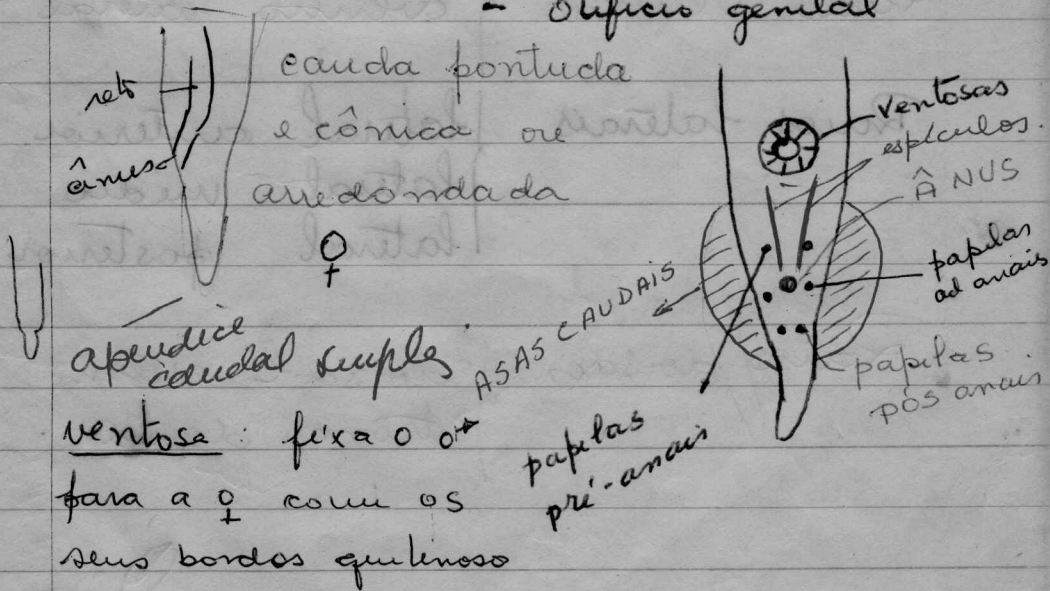 - Orifício genital
cauda pontuda
e cônica ou
arredondada
reto
ânus
♀
apendice
caudal simples
ventosa: fixa o ♂
para a ♀ com os
seus bordos quitinoso
ventosas
espículos.
ÂNUS
papilas
ad anais
papilas
pós anais
ASAS CAUDAIS
papilas
pré-anais